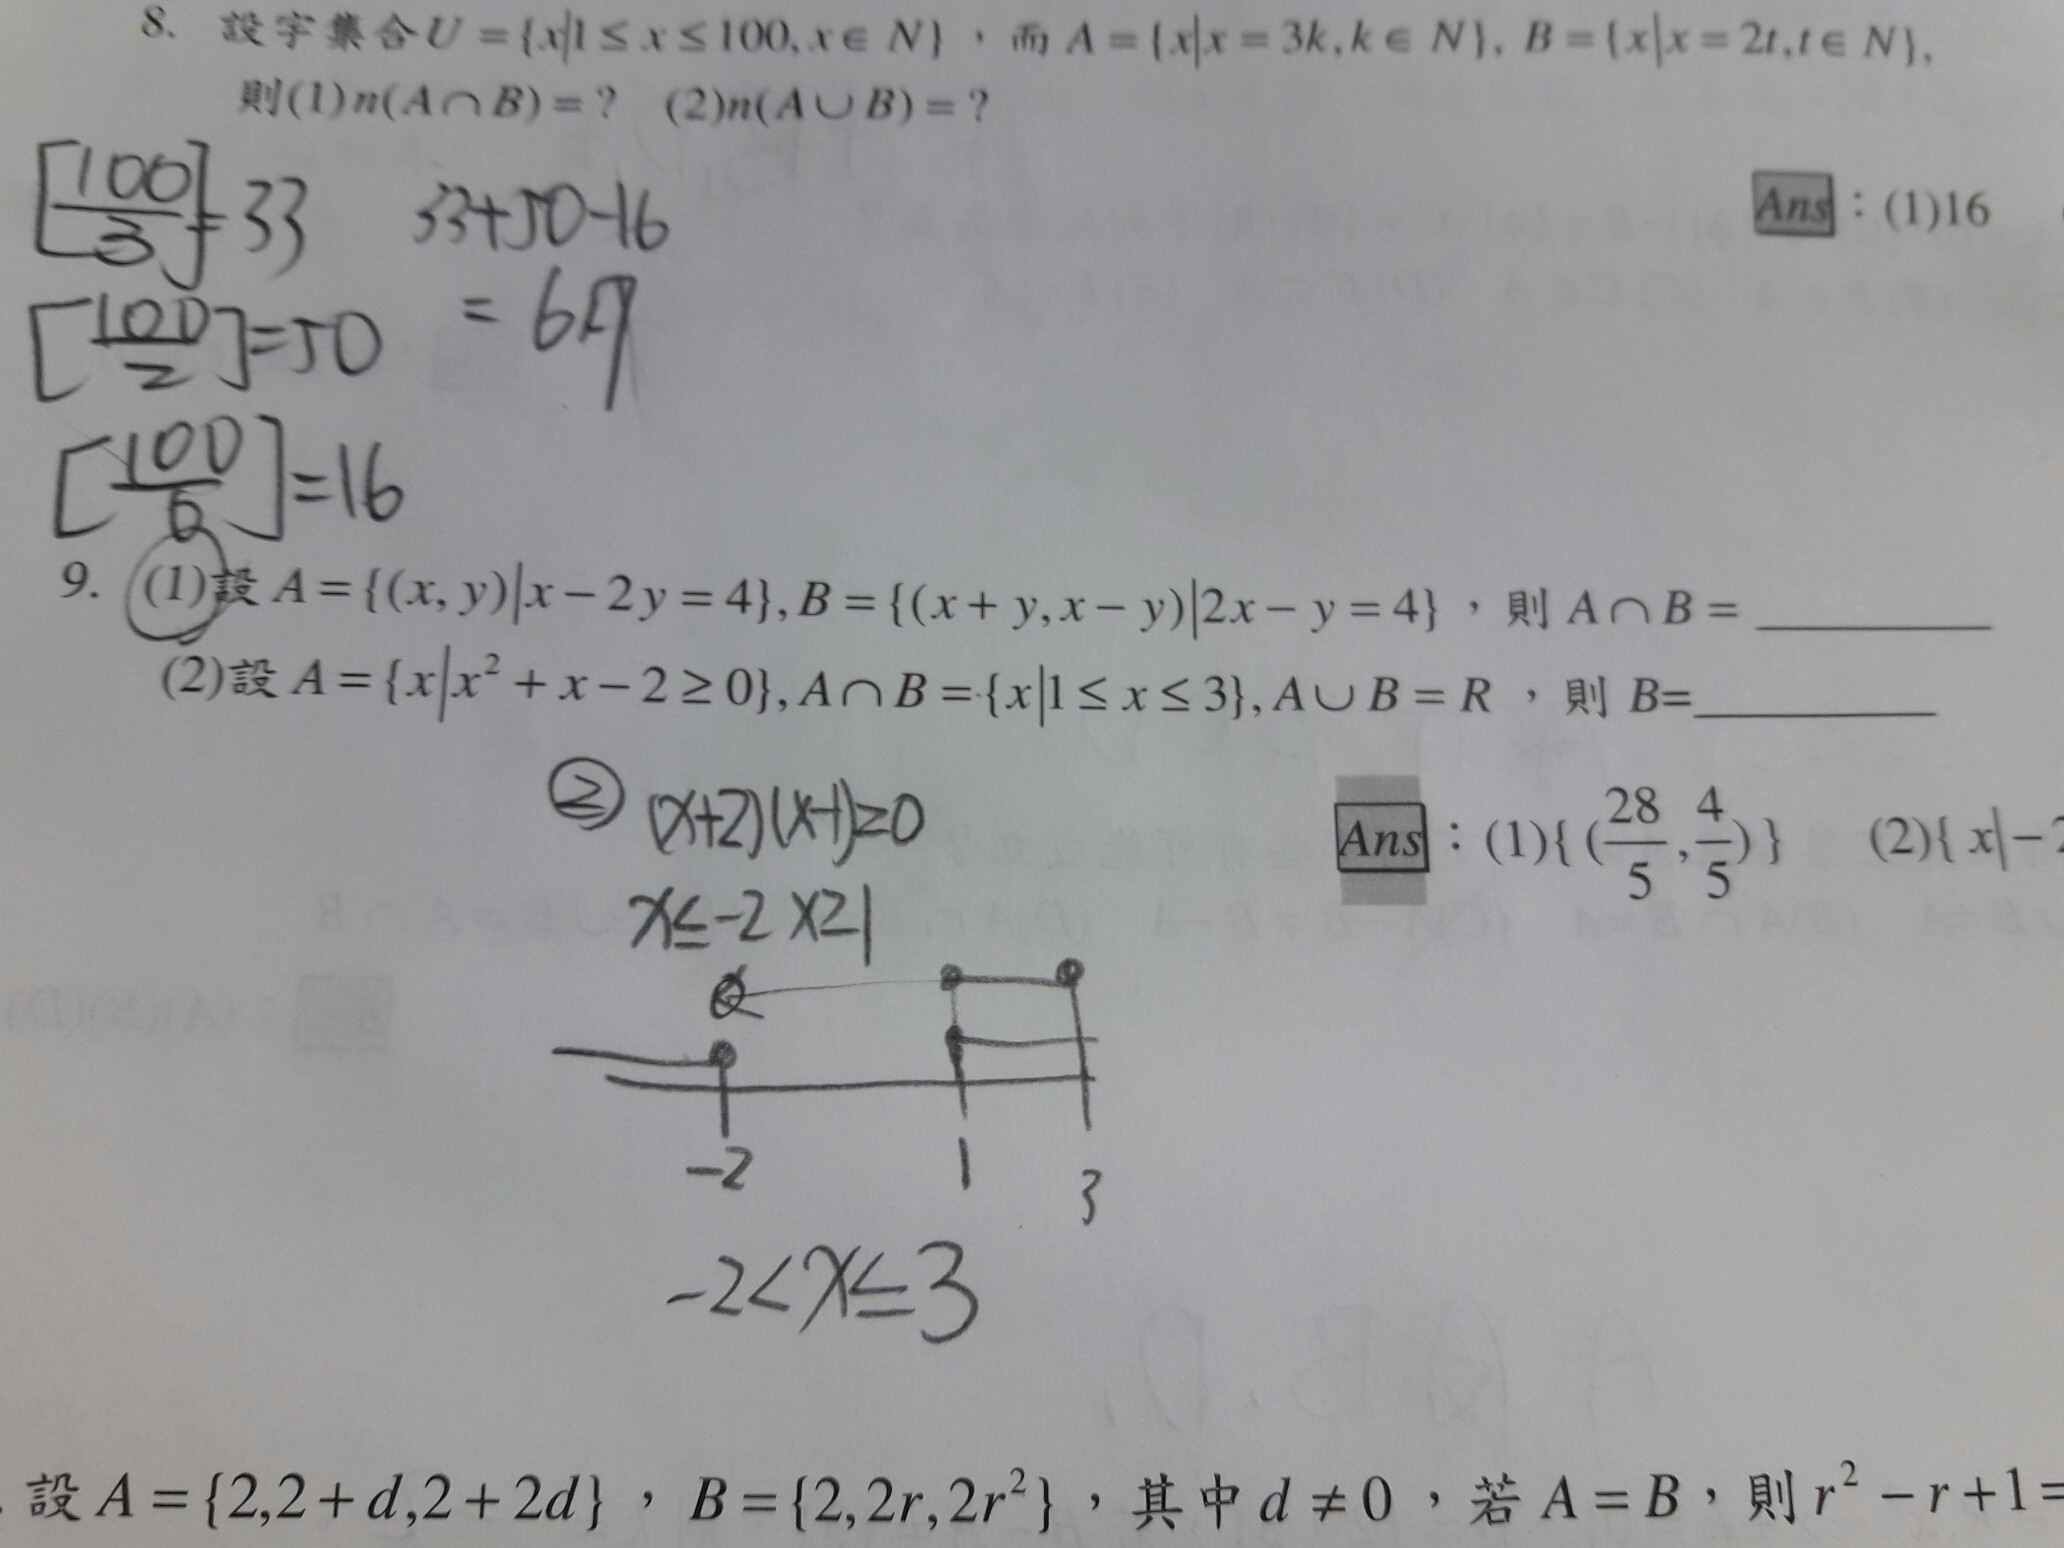 8. 設宇集合U={x|1≤x≤100,x∈N}，而A={x|x=3k,k∈N},B={x|x=2t,t∈N},
則(1)n(A∩B)=? (2)n(A∪B)=?
[100/3]=33 33+50-16
Ans：(1)16
[100/2]=50 =67
[100/6]=16
9. (1)設A={(x,y)|x-2y=4},B={(x+y,x-y)|2x-y=4}，則A∩B=
(2)設A={x|x²+x-2≥0},A∩B={x|1≤x≤3},A∪B=R，則B=
② (x+2)(x-1)≥0
Ans：(1){(28/5,4/5)} (2){x|-2
x≤-2 x≥1
-2 1 3
-2<x≤3
設A={2,2+d,2+2d}，B={2,2r,2r²}，其中d≠0，若A=B，則r²-r+1=